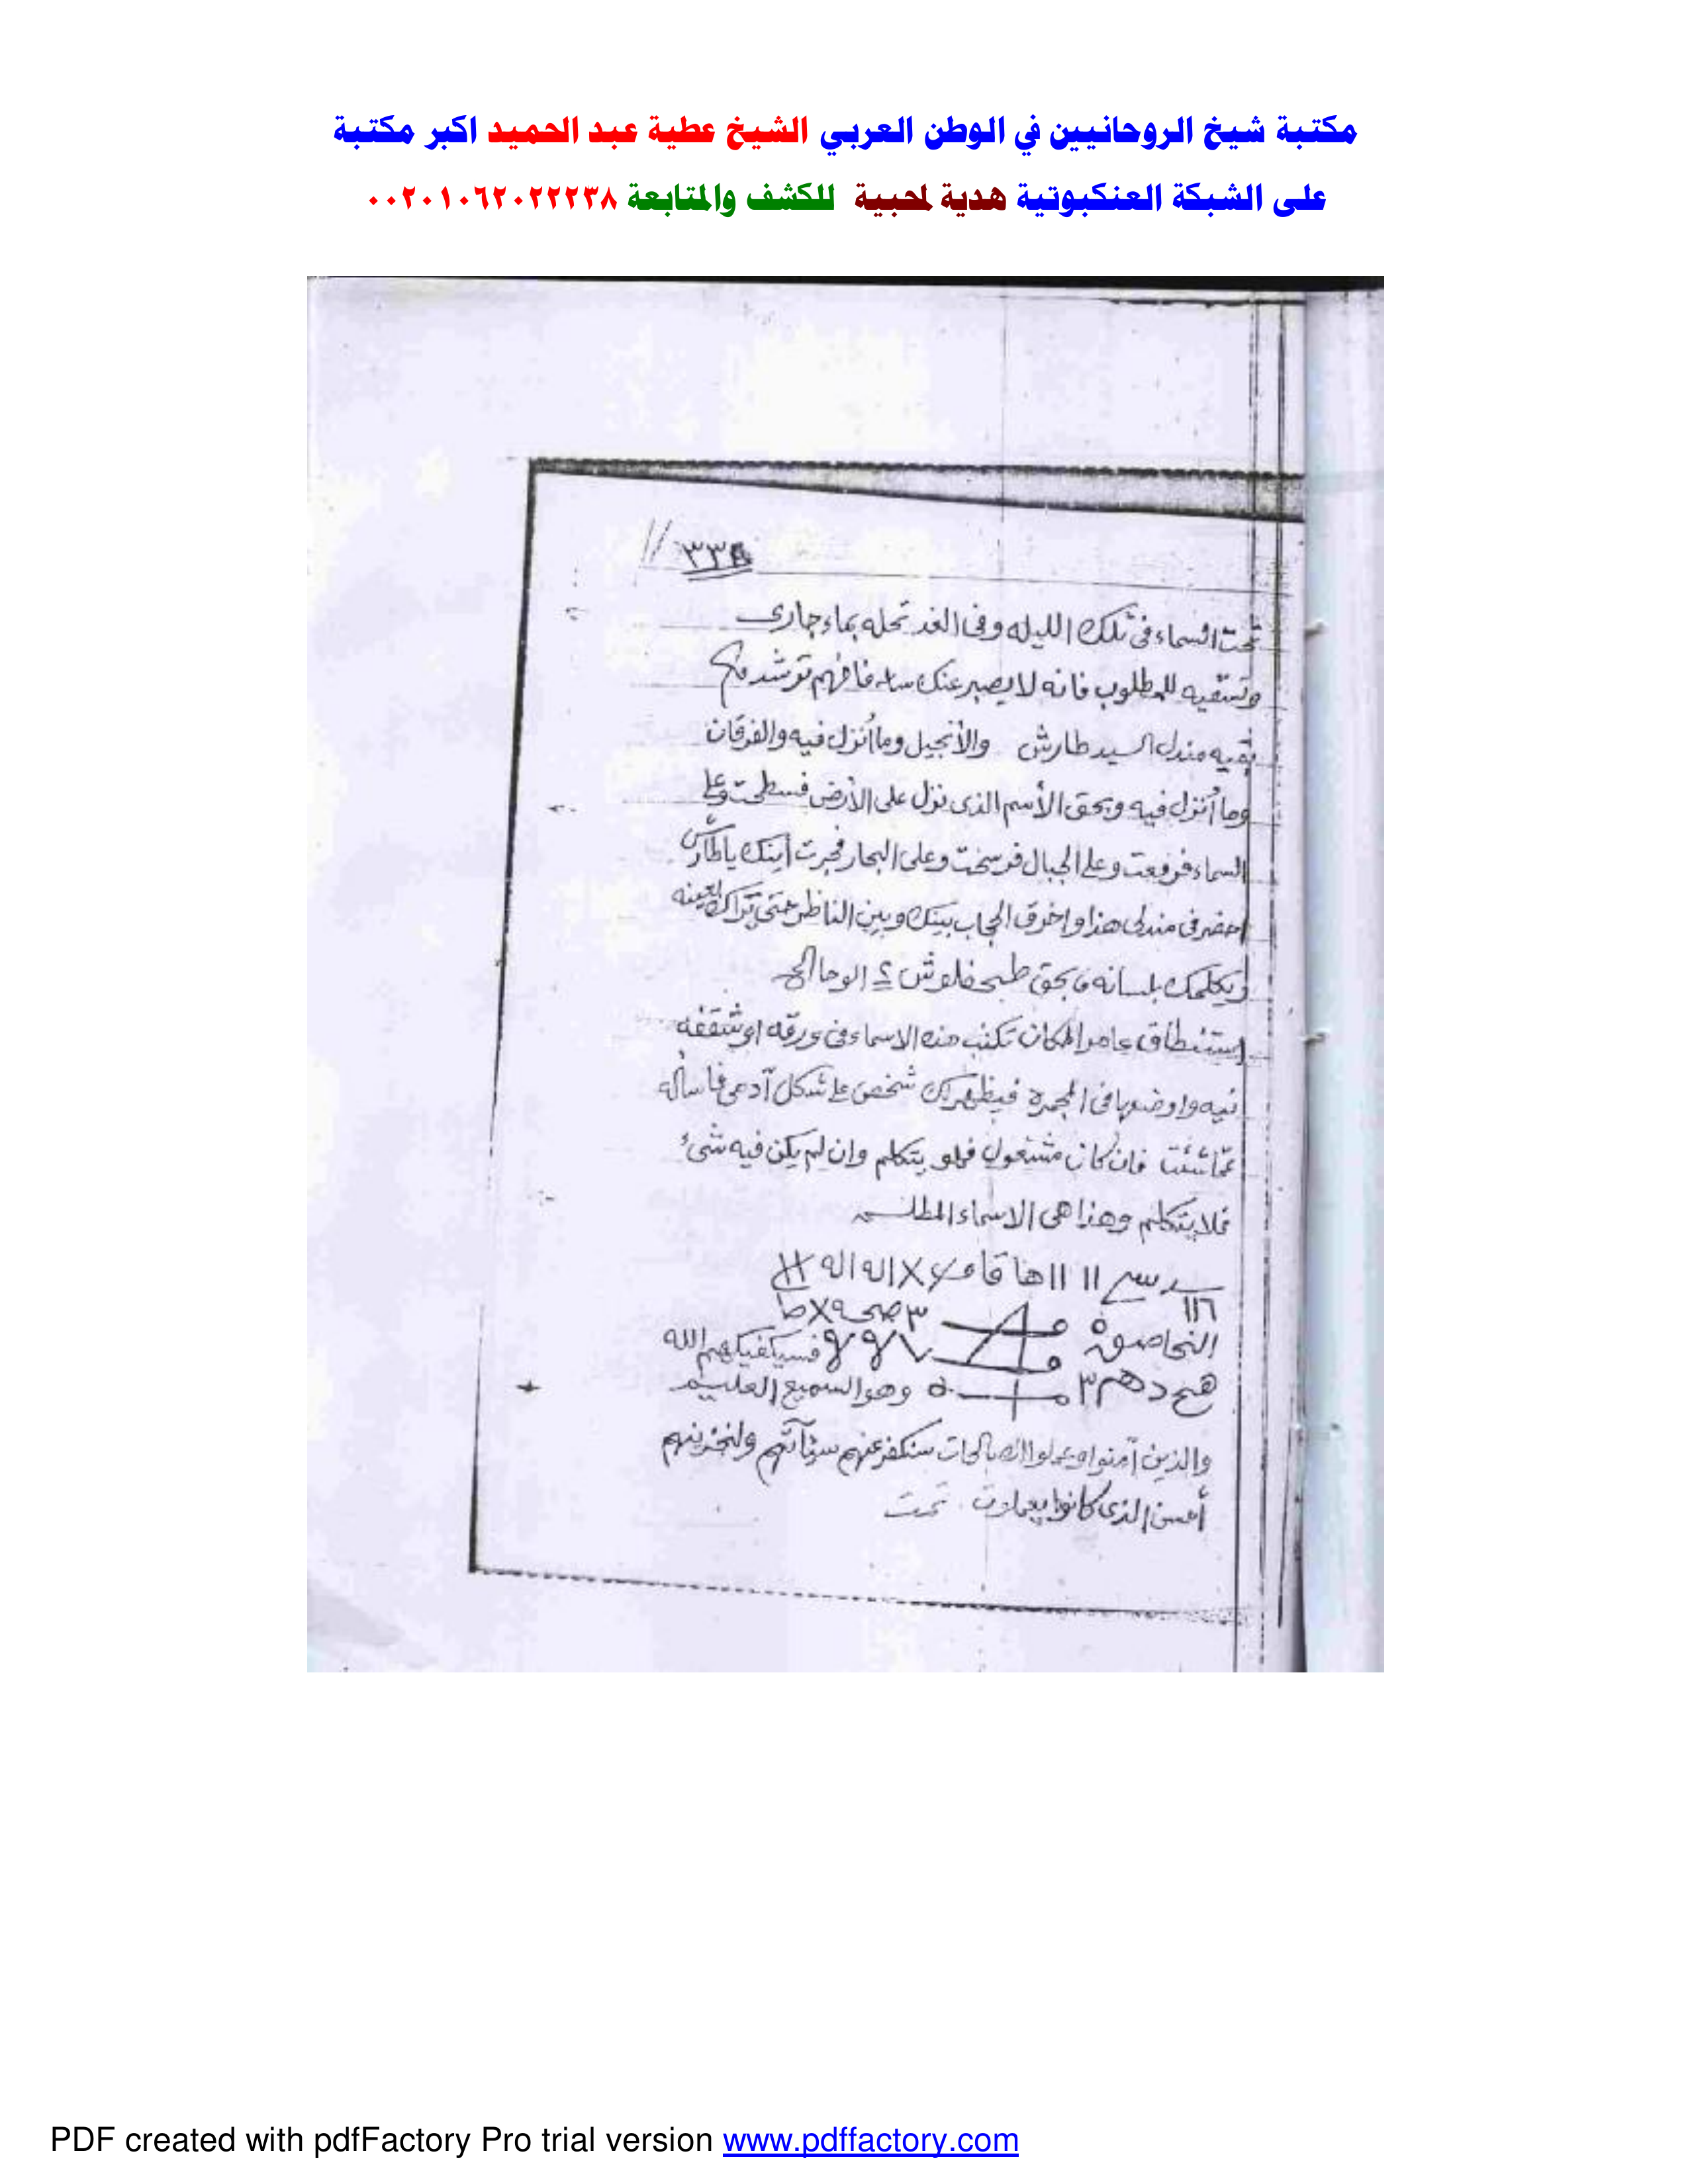 مكتبة شيخ الروحانيين في الوطن العربي الشيخ عطية عبد الحميد اكبر مكتبة
على الشبكة العنكبوتية هدية لمحبية للكشف والمتابعة ٠٠٢٠١٠٦٢٠٢٢٢٣٨
٣٣٨
تحت السماء فى تلك الليله وفى الغد تحله بماء جارى
وتسقيه للمطلوب فانه لا يصبر عنك ساعه فافهم توشد
بقيه مندل السيد طارش والأنجيل وما أنزل فيه والفرقان
وما أنزل فيه وبحق الأسم الذى نزل على الأرض فسطحت وعلى
السماء فرفعت وعلى الجبال فرسخت وعلى البحار فجرت أينك ياطارش
احضر فى مندلى هذا واخرق الحجاب بينك وبين الناظر حتى يراك بعينه
ويكلمك بلسانه بحق الوحا الخ
إستنطاق عامر المكان تكتب هذه الاسماء فى ورقه او شقفه
نيه واوضعها فى المجمرة فيظهر لك شخص على شكل آدمى فاسأله
عما شئت فان كان مشغول فهو يتكلم وان لم يكن فيه شىء
فلا يتكلم وهذا هى الاسماء المطلسمه
فسيكفيكهم الله
وهو السميع العليم
والذين آمنوا وعملوا الصالحات سنكفر عنهم سيئآتهم ولنجزينهم
أحسن الذى كانوا يعملون تمت
PDF created with pdfFactory Pro trial version www.pdffactory.com